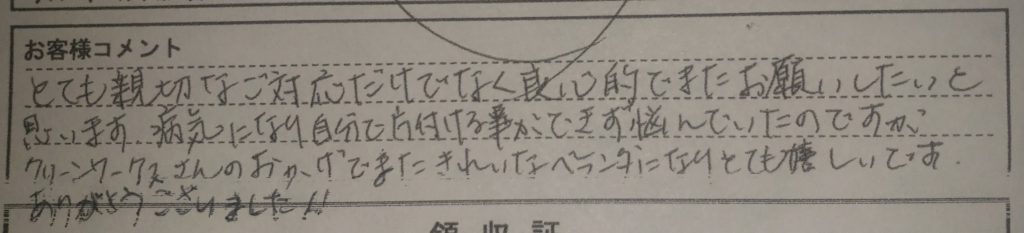 お客様コメント
とても親切なご対応だけでなく良心的でまたお願いしたいと
思います。病気になり自分で片付ける事ができず悩んでいたのですが
クリーンワークスさんのおかげでまたきれいなベランダになりとても嬉しいです.
ありがとうございました!!
領収証